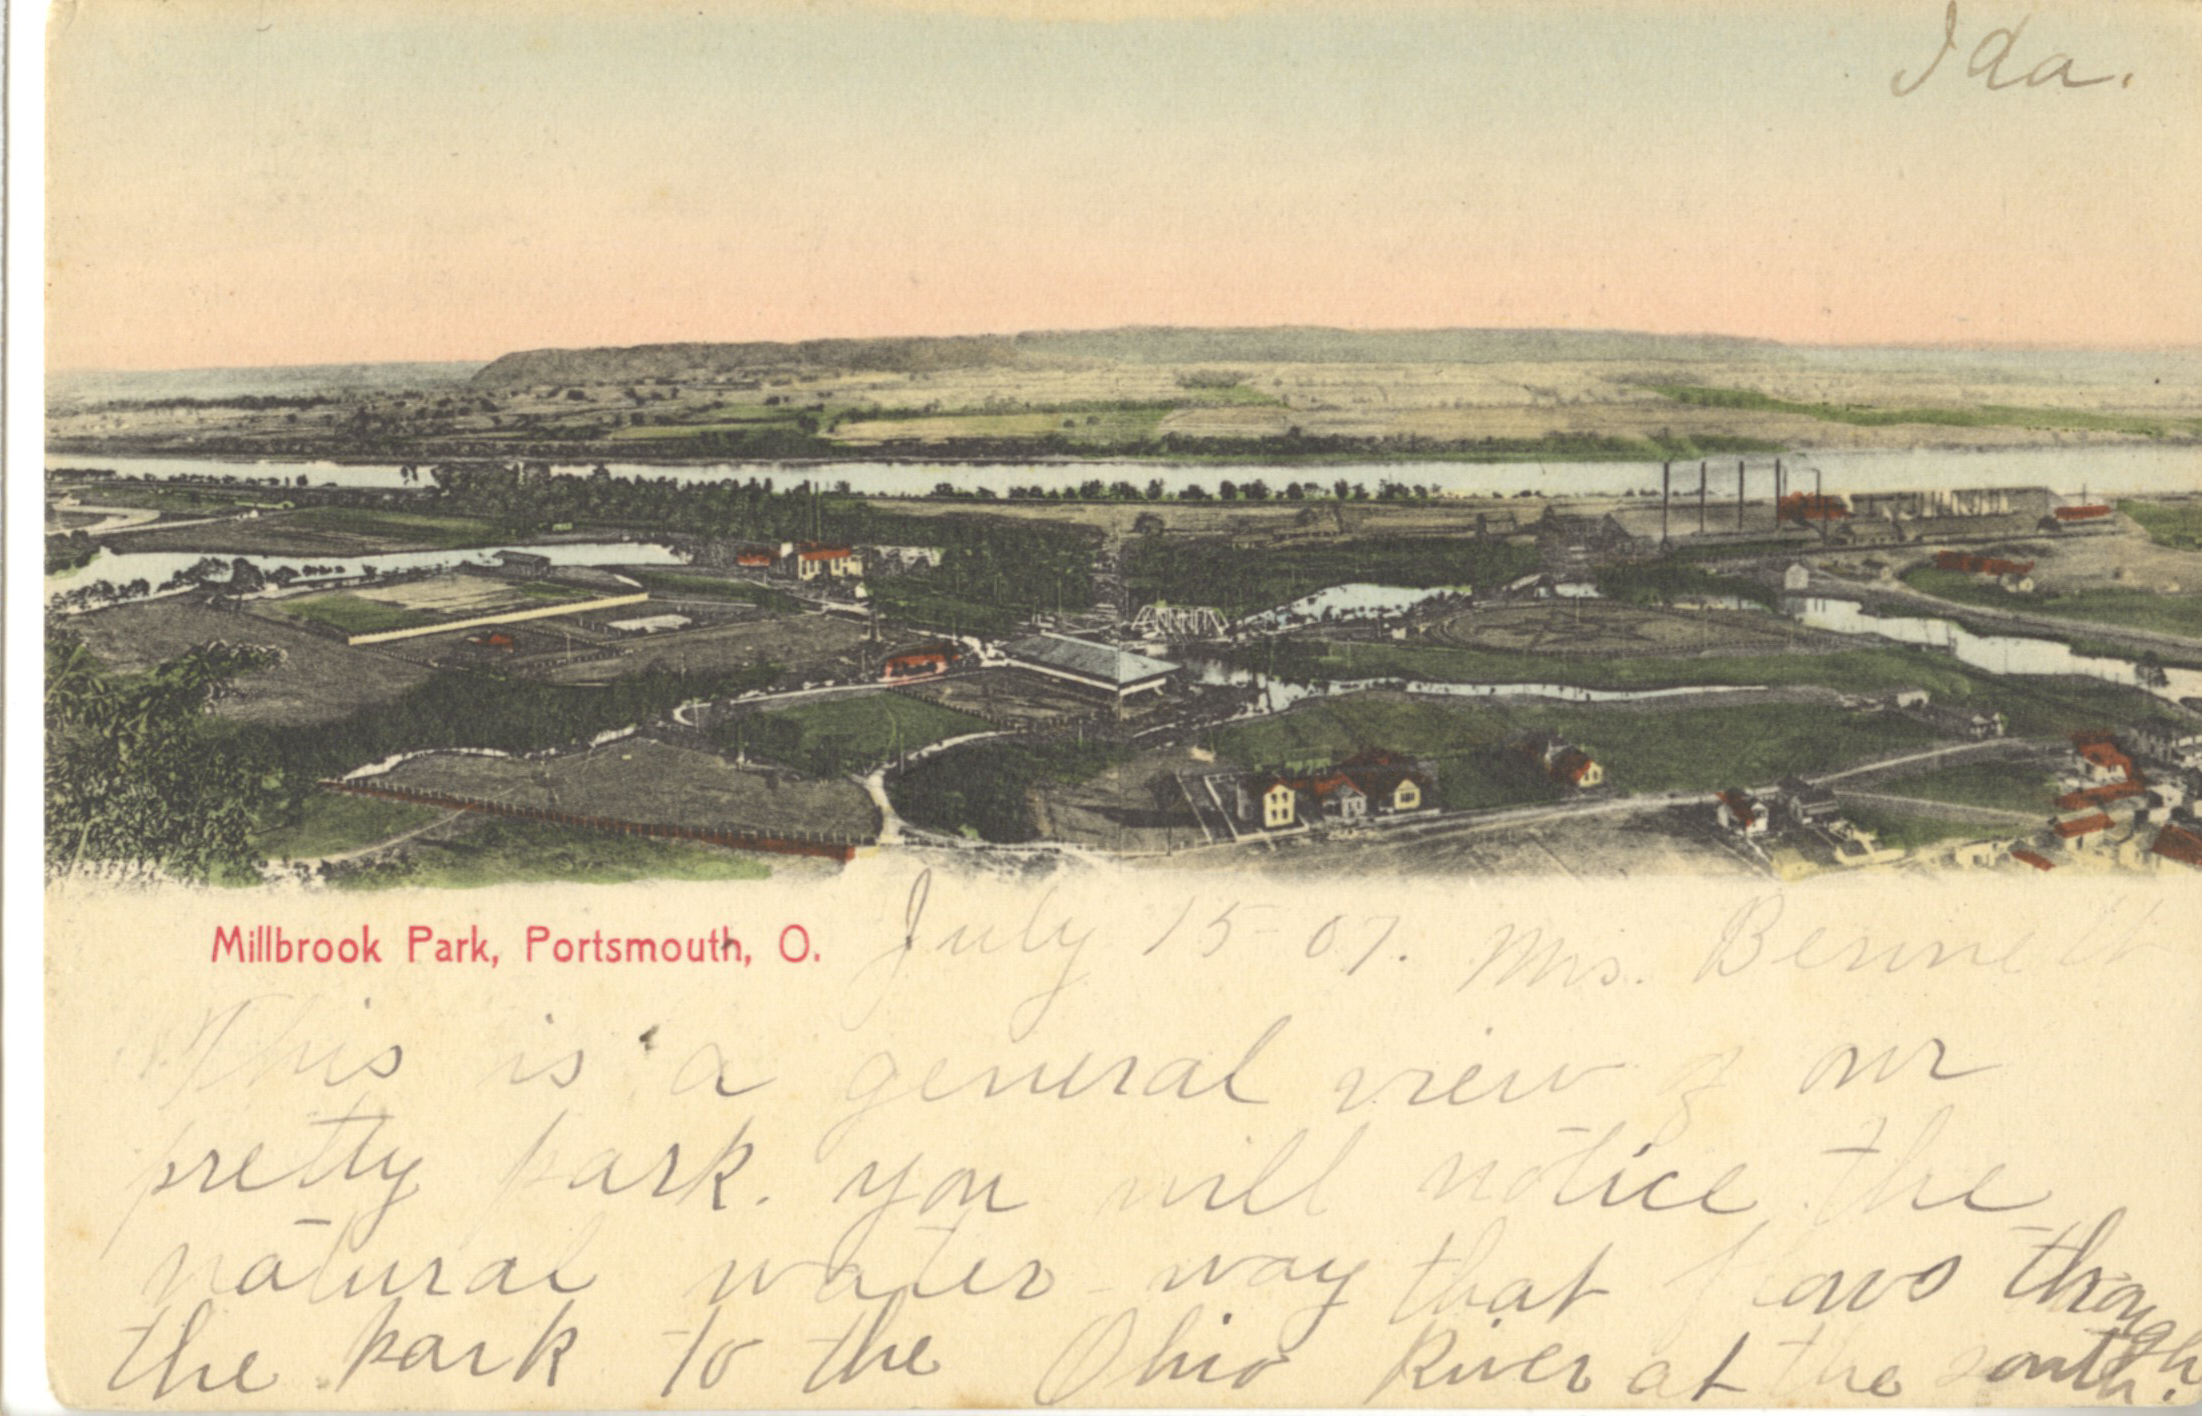 Ida.
Millbrook Park, Portsmouth, O.
July 15-07. Mrs. Bennett
This is a general view of our
pretty park. you will notice the
natural water-way that flows through
the park to the Ohio River at the south.